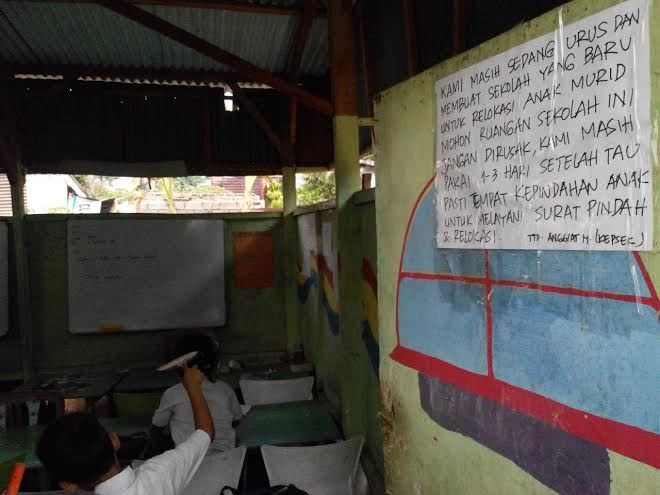 KAMI MASIH SEDANG URUS DAN
MEMBUAT SEKOLAH YANG BARU
UNTUK RELOKASI ANAK MURID
MOHON RUANGAN SEKOLAH INI
JANGAN DIRUSAK, KAMI MASIH
PAKAI 1-3 HARI SETELAH TAU
PASTI TEMPAT KEPINDAHAN ANAK
UNTUK MELAYANI SURAT PINDAH
& RELOKASI. TTD. ANGGIAT M. (KEPSEK)